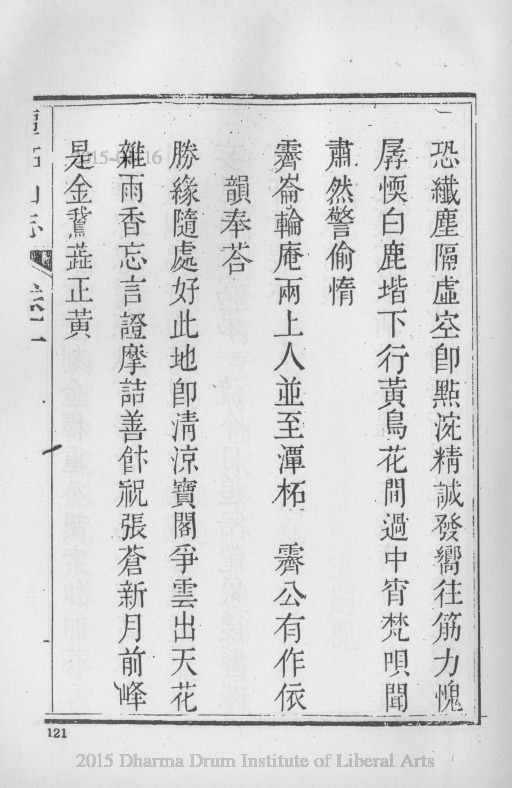 恐纖塵隔虛空卽點涴精誠發嚮往筋力愧
孱愞白鹿堦下行黃鳥花間過中宵梵唄聞
肅然警偷惰
霽崙輪庵兩上人並至潭柘 霽公有作依
韻奉荅
勝緣隨處好此地卽淸涼寶閣爭雲出天花
雜雨香忘言證摩詰善餅祝張蒼新月前峰
是金鵞蘂正黃
121
2015 Dharma Drum Institute of Liberal Arts